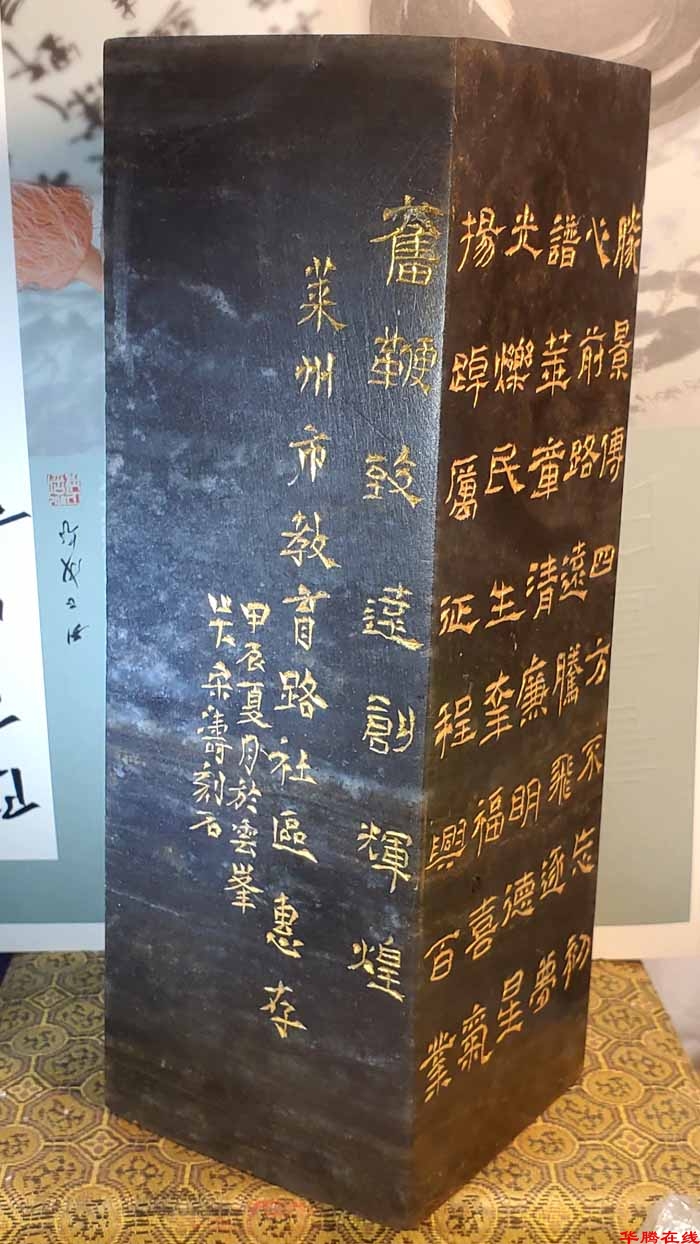 勝景傳四方不忘初
心前路遠騰飛逐夢
譜華章清廉明德星
光爍民生幸福喜氣
揚踔厲征程興百業
奮鞭致遠創輝煌
萊州市教育路社區惠存
甲辰夏月於雲峯
吴宗濤刻石
华腾在线